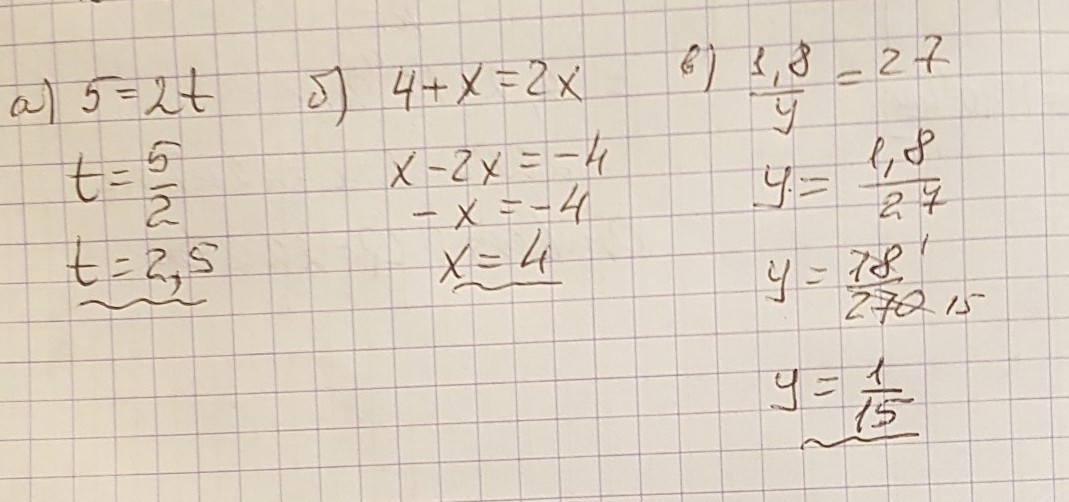 а) 5 = 2t
t = 5/2
t = 2,5
б) 4 + x = 2x
x - 2x = -4
- x = -4
x = 4
в) 1,8/y = 27
y = 1,8/27
y = 18 1/270 15
y = 1/15